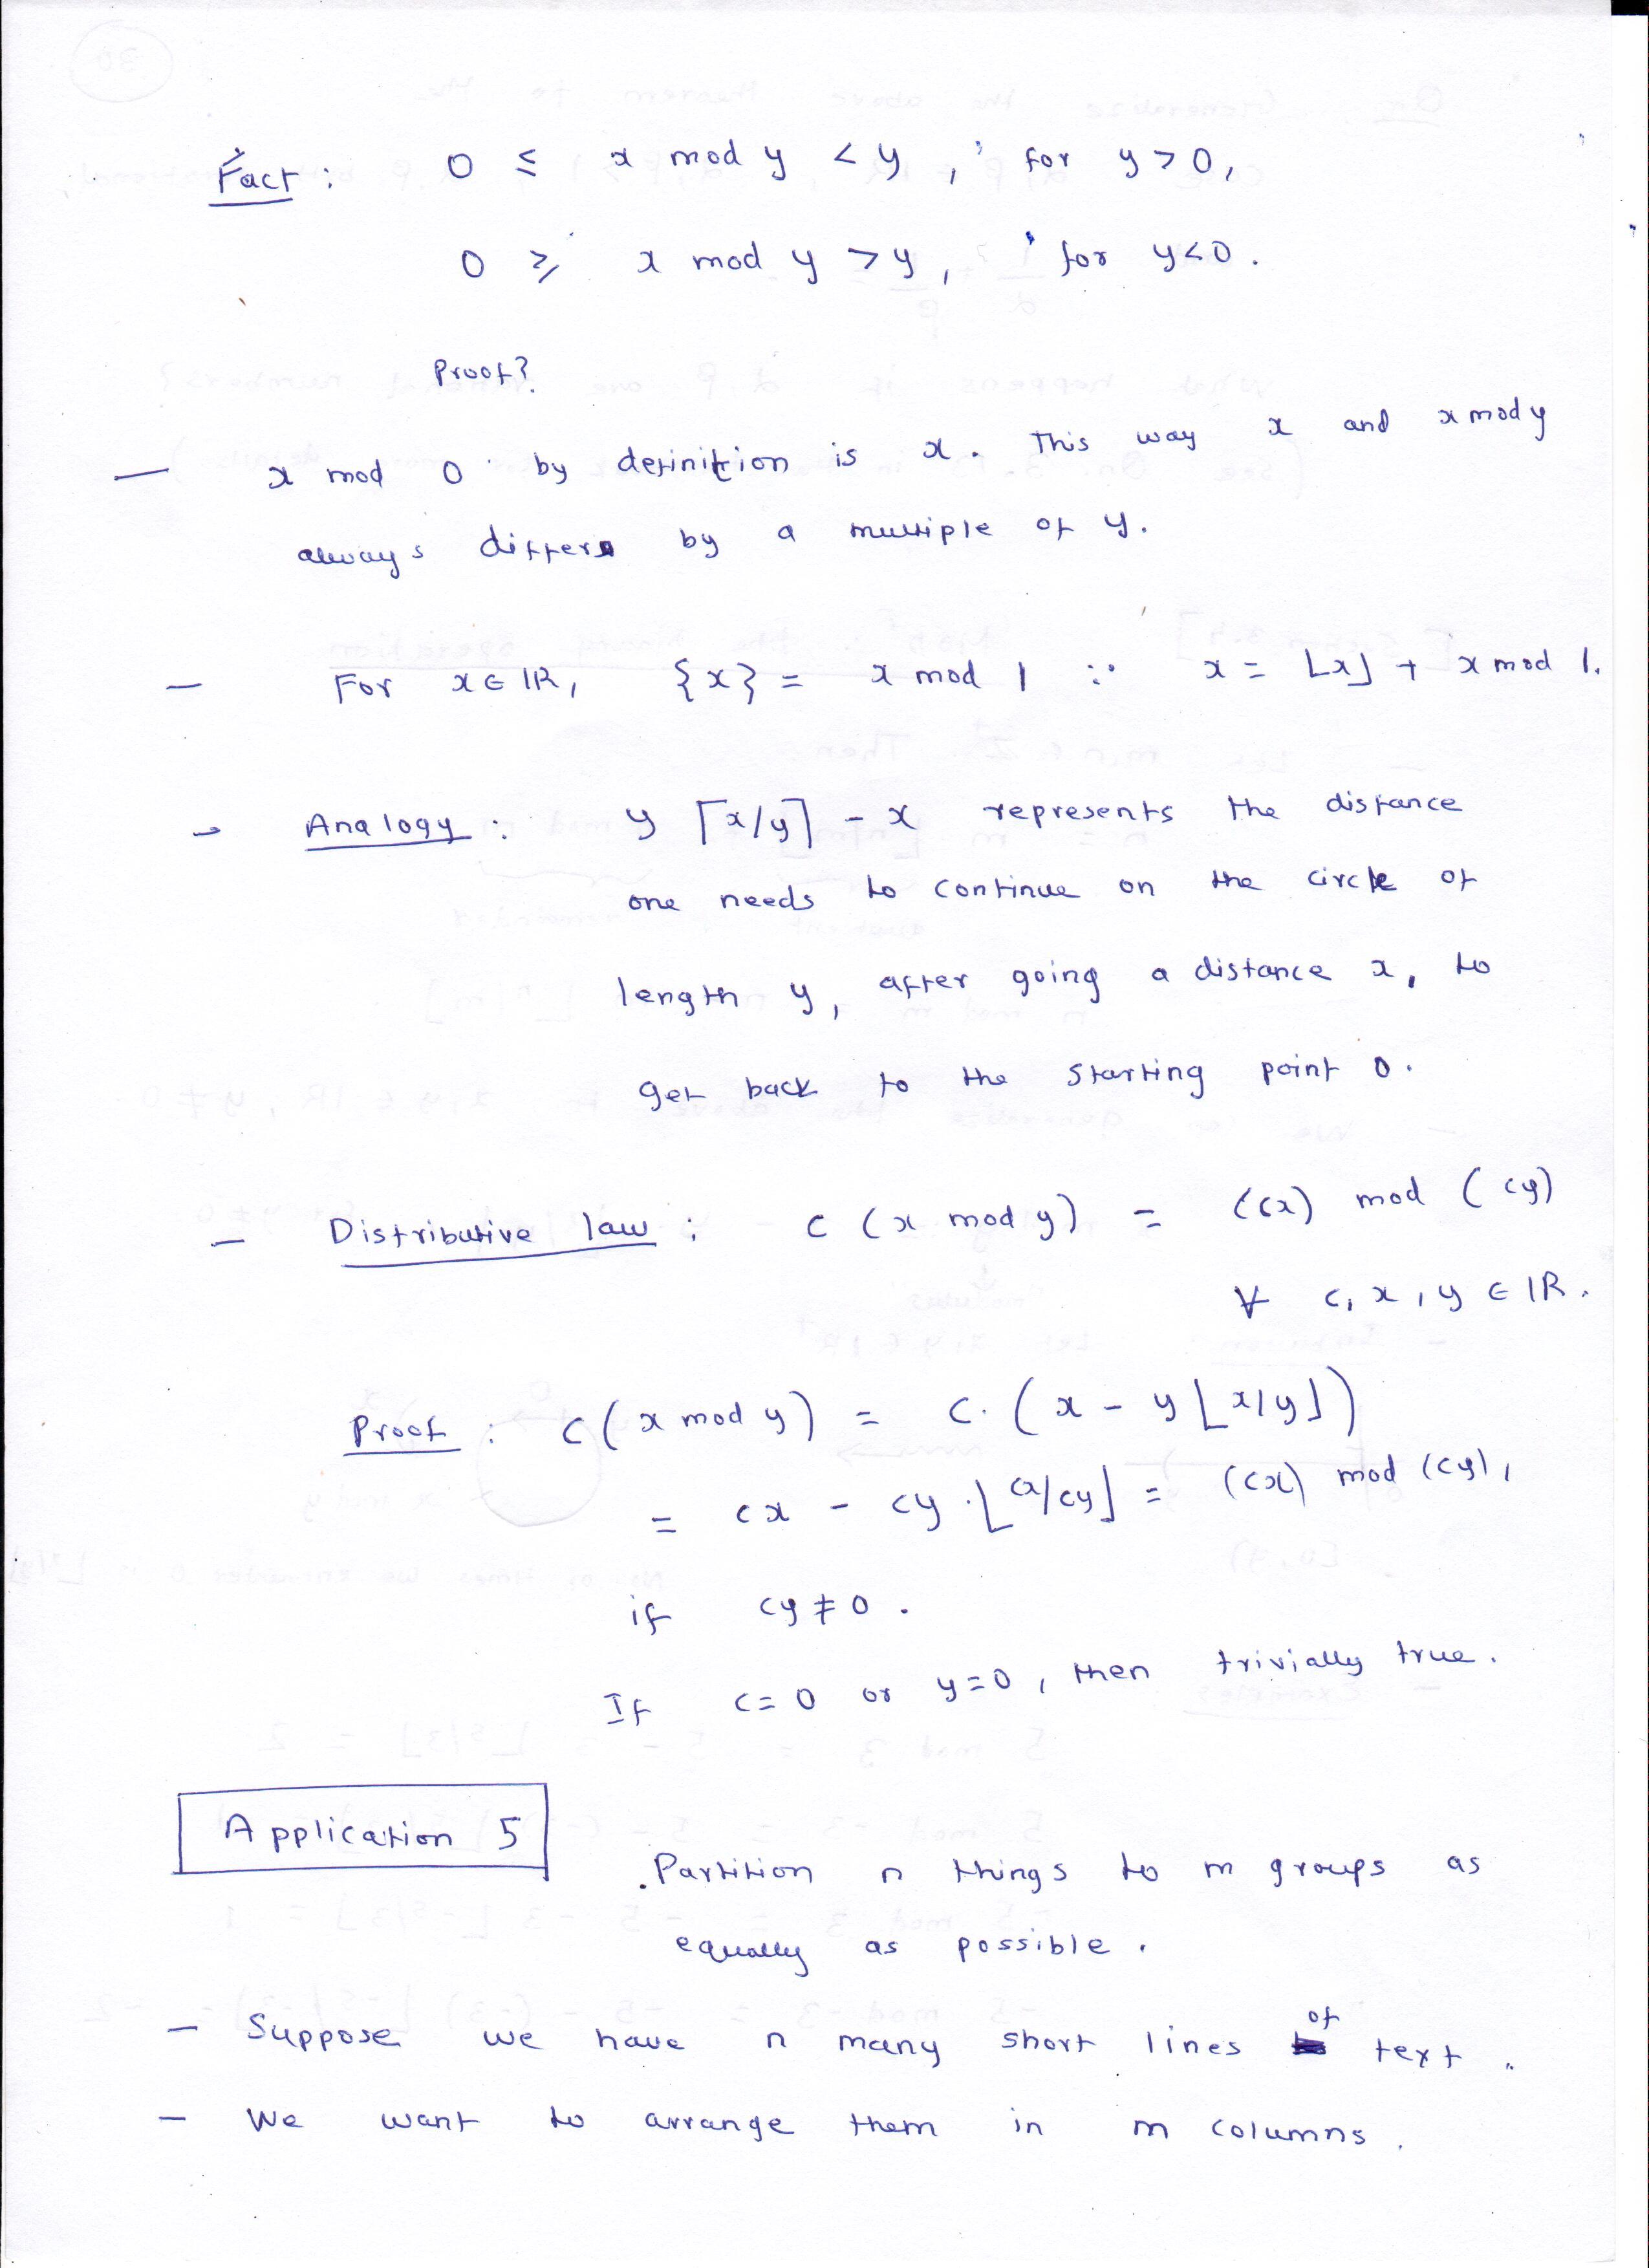 Fact : 0 ≤ x mod y < y, for y > 0,
0 ≥ x mod y > y, for y < 0.
Proof?
— x mod 0 by definition is x. This way x and x mod y
always differs by a multiple of y.
— For x ∈ ℝ, {x} = x mod 1 ∵ x = ⌊x⌋ + x mod 1.
- Analogy : y ⌈x/y⌉ - x represents the distance
one needs to continue on the circle of
length y, after going a distance x, to
get back to the starting point 0.
— Distributive law : c (x mod y) = (cx) mod (cy)
∀ c, x, y ∈ ℝ.
Proof : c(x mod y) = c. (x - y ⌊x/y⌋)
= cx - cy . ⌊cx/cy⌋ = (cx) mod (cy),
if cy ≠ 0.
If c = 0 or y = 0, then trivially true.
Application 5
Partition n things to m groups as
equally as possible.
— Suppose we have n many short lines of text.
— We want to arrange them in m columns.